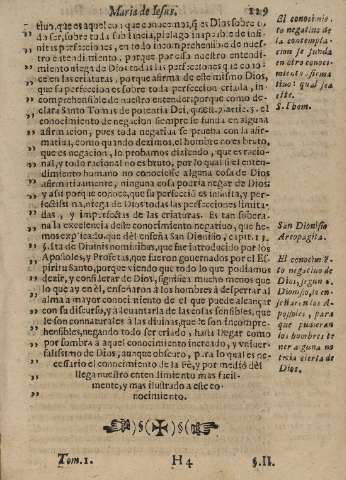 Maria de Iesus. 119
tiuo, que es aquel con que conocemos, q̃ es Dios sobre to
do ser, sobre toda substancia, pielago impasible de infi-
nitas perfecciones, en todo incomprehensible de nues-
tro entendimiento, porque por esso nuestro entendi-
miento niega de Dios las perfecciones que co
ce en las criaturas, porque afirma de este mismo Dios,
que su perfeccion es sobre toda perfeccion criada, in-
comprehensible de nuestro entender: porque como de-
clara Santo Tomas de potentia Dei, quæst. el
conocimiento de negacion siempre se funda en alguna
afirmacion, pues toda negatiua se prueba con la afir-
matiua, como quando dezimos, el hombre no es bruto,
que es negacion, lo probamos diziendo, que es racio-
nal, y todo racional no es bruto, por lo qual si el enten-
dimiento humano no conociesse alguna cosa de Dios
afirmatiuamente, ninguna cosa podria negar de Dios:
y assi porque conoce, que su perfecciõ es infinita, y per-
fectissima, niega de Dios todas las perfecciones limita-
das, y imperfectas de las criaturas. Es tan sobera-
na la excelencia deste conocimiento negatiuo, que he-
mos explicado, que del enseña San Dionisio, capit. 13.
§. 3. de Diuinis nominibus, que fue introducido por los
Apostoles, y Profetas, que fueron gouernados por el Es-
piritu Santo, porque viendo que todo lo que podiamos
dezir, y considerar de Dios, significa mucho menos que
lo que ay en èl, enseñaron a los hombres à despertar al
alma a mayor conocimiento de el que puede alcançar
con su discurso, y a leuantarla de las cosas sensibles, que
le son connaturales à las diuinas, que le son incompre-
hensibles, negando todo ser criado, hasta llegar como
por sombra a aquel conocimiento increado, y vniuer-
salissimo de Dios, aunque obscuro, para lo qual es ne-
cessario el conocimiento de la Fè, y por medio dèl
llega nuestro entendimiento mas facil-
mente, y mas ilustrado a este co-
nocimiento.
El conocimie-
to negatiuo de
la contempla-
cion se funda
en otro conoci-
miento afirma
tiuo: qual sea
este.
S. Thom.
San Dionisio
Areopagita.
El conocimiẽ-
to negatiuo de
Dios, segun S.
Dionisio, lo en-
señaron los A-
postoles, para
que pudieran
los hombres te-
ner alguna no
ticia cierta de
Dios.
Tom. 1. H 4 §. II.